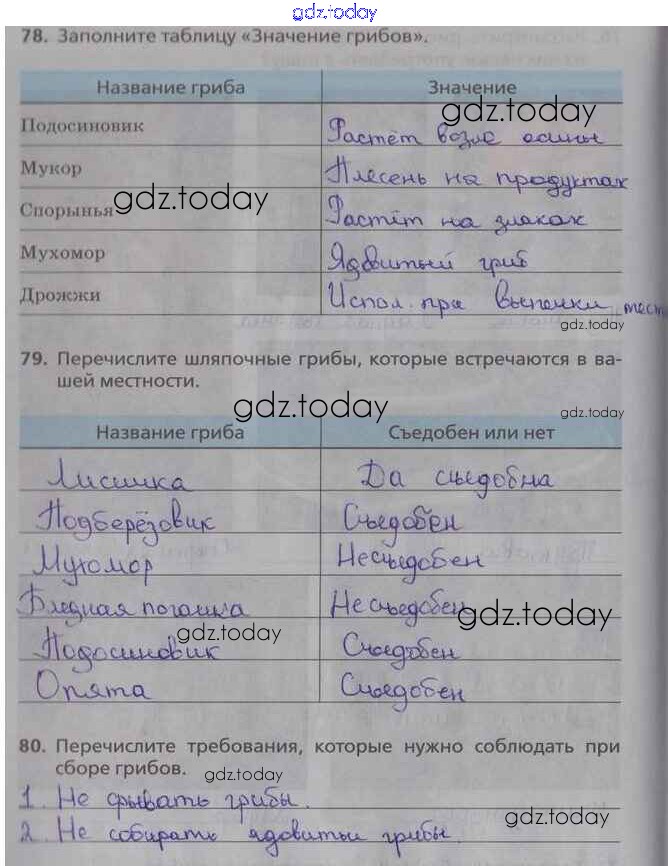 gdz.today
78. Заполните таблицу «Значение грибов».
Название гриба Значение
gdz.today
Подосиновик Растёт возле осины
Мукор Плесень на продуктах
gdz.today
Спорынья Растёт на злаках
Мухомор Ядовитый гриб
Дрожжи Испол. при выпечки тест
gdz.today
79. Перечислите шляпочные грибы, которые встречаются в ва-
шей местности.
gdz.today gdz.today
Название гриба Съедобен или нет
Лисичка Да съедобна
Подберёзовик Съедобен
Мухомор Несъедобен
Бледная поганка Несъедобен
gdz.today gdz.today
Подосиновик Съедобен
Опята Съедобен
80. Перечислите требования, которые нужно соблюдать при
сборе грибов.
gdz.today
1. Не срывать грибы.
gdz.today
2. Не собирать ядовитые грибы.